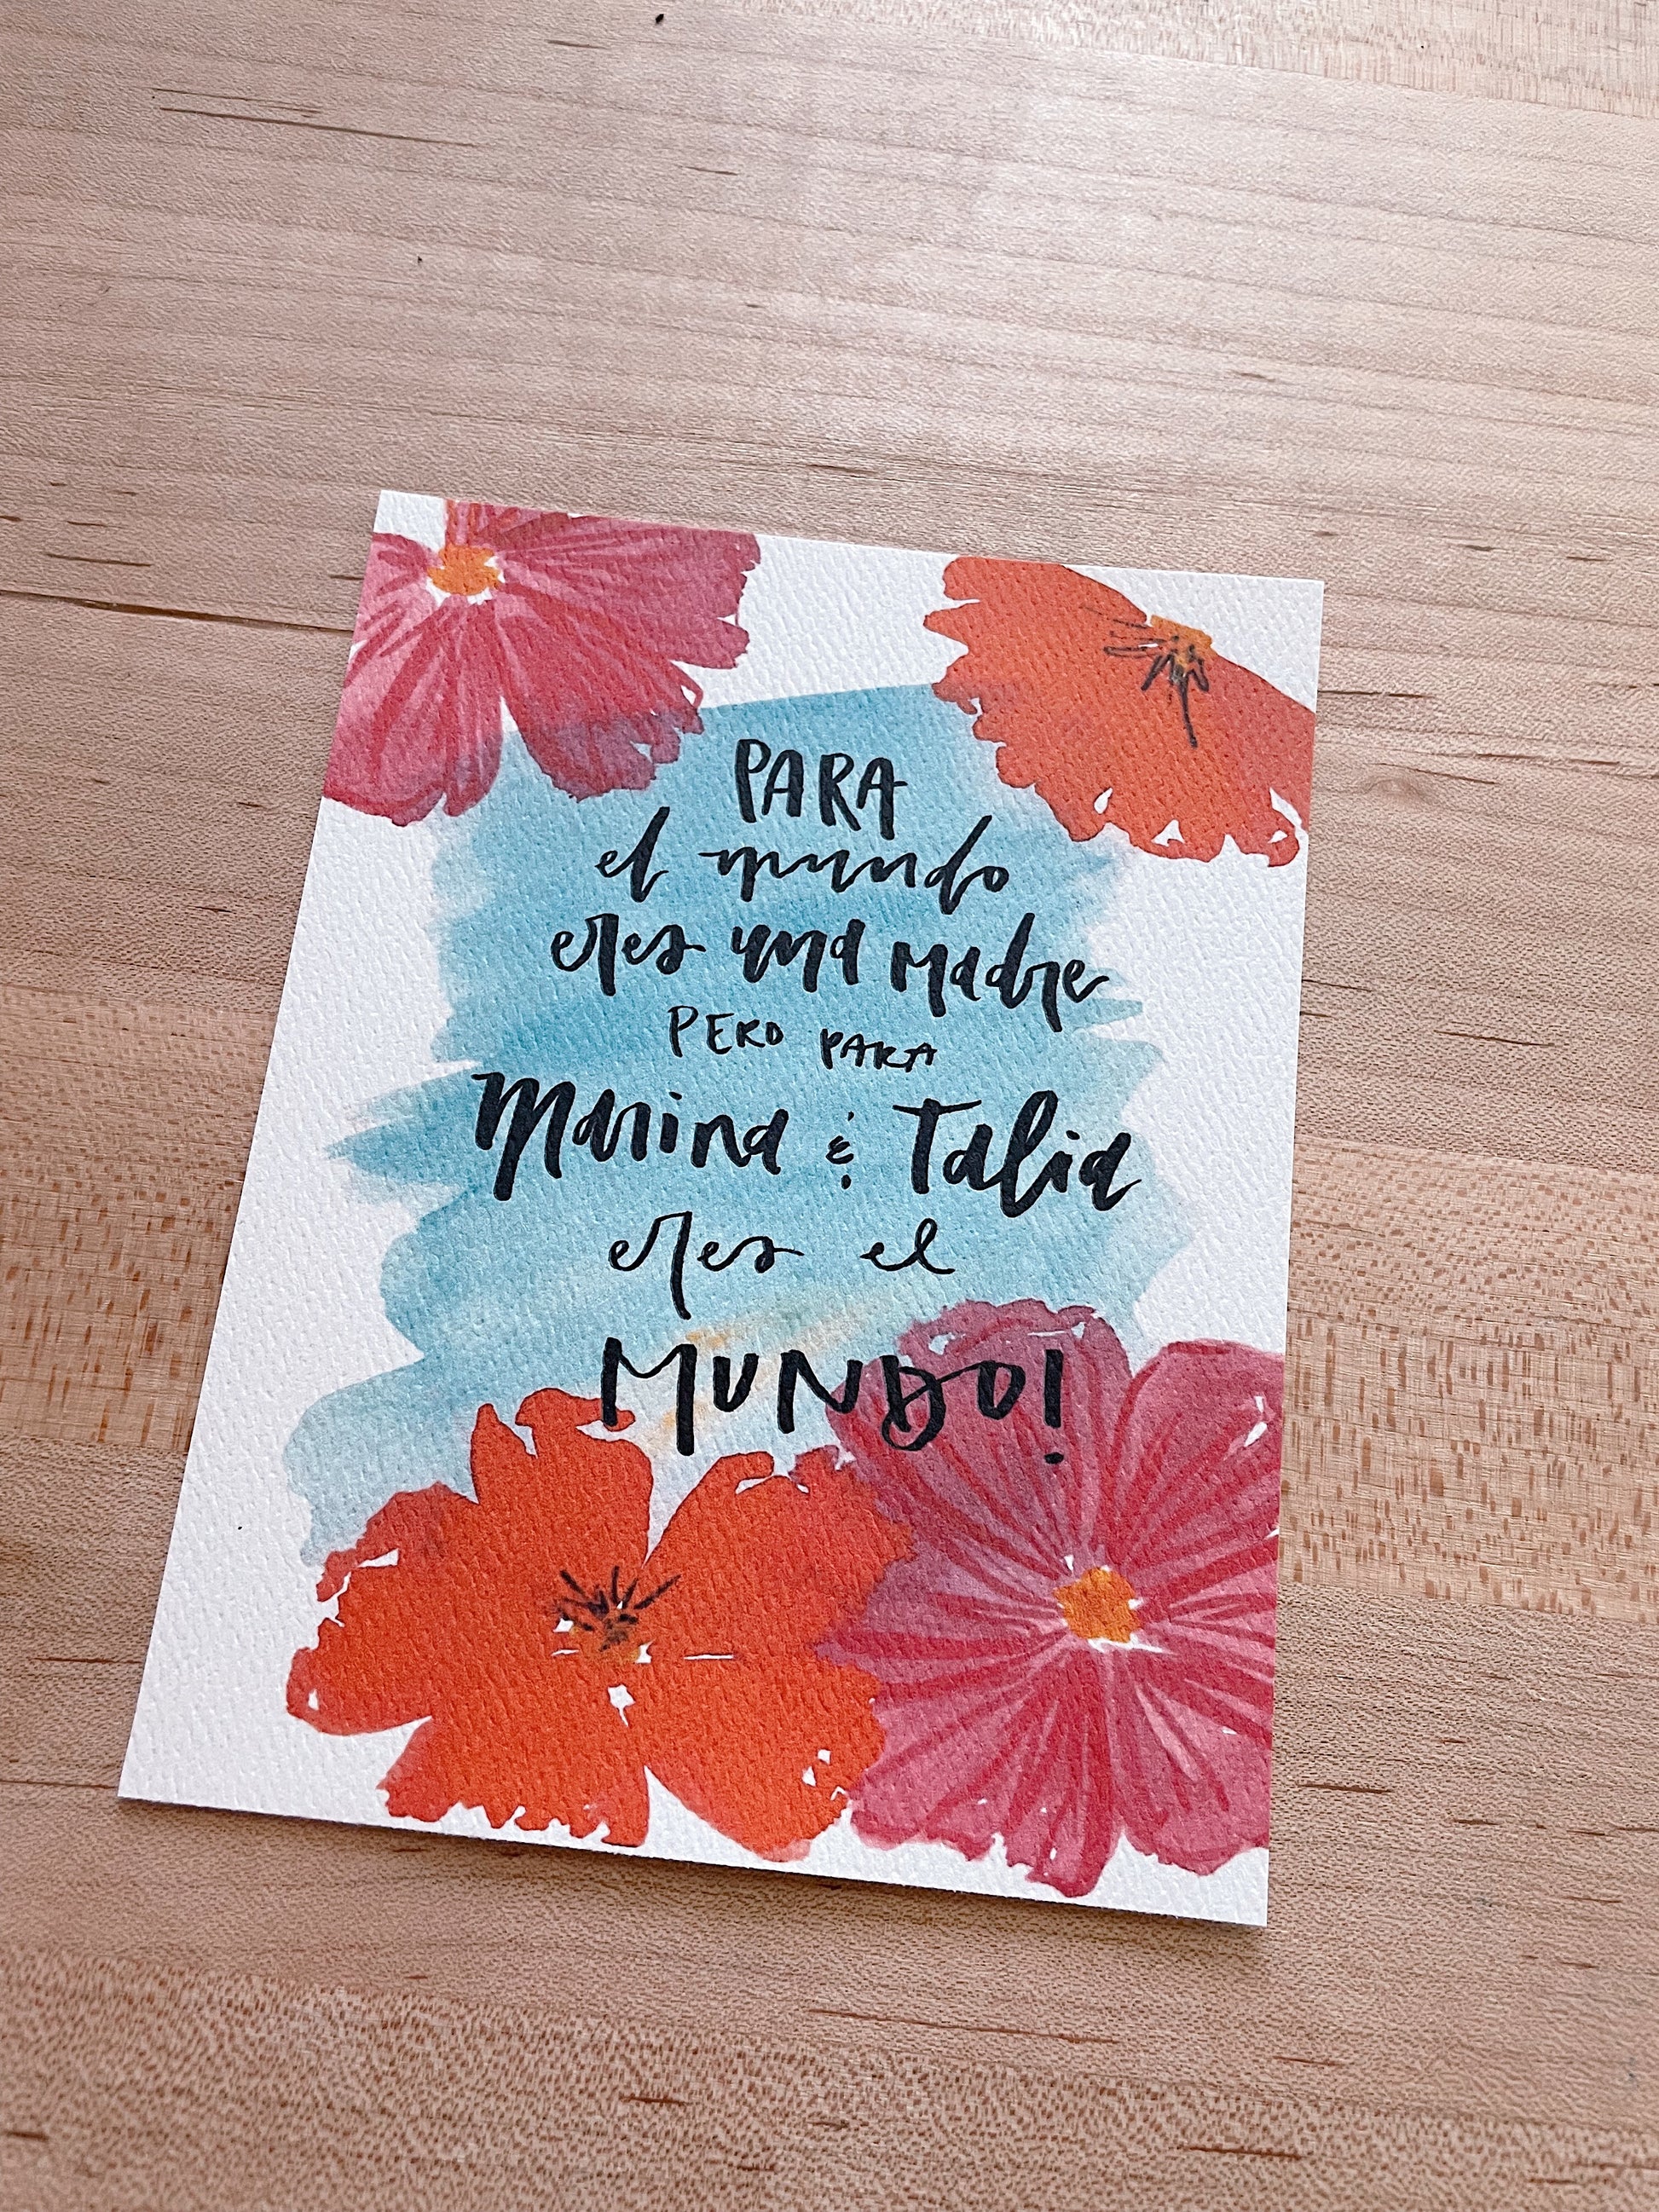 PARA
el mundo
eres una madre
PERO PARA
Marina & Talia
eres el
MUNDO!